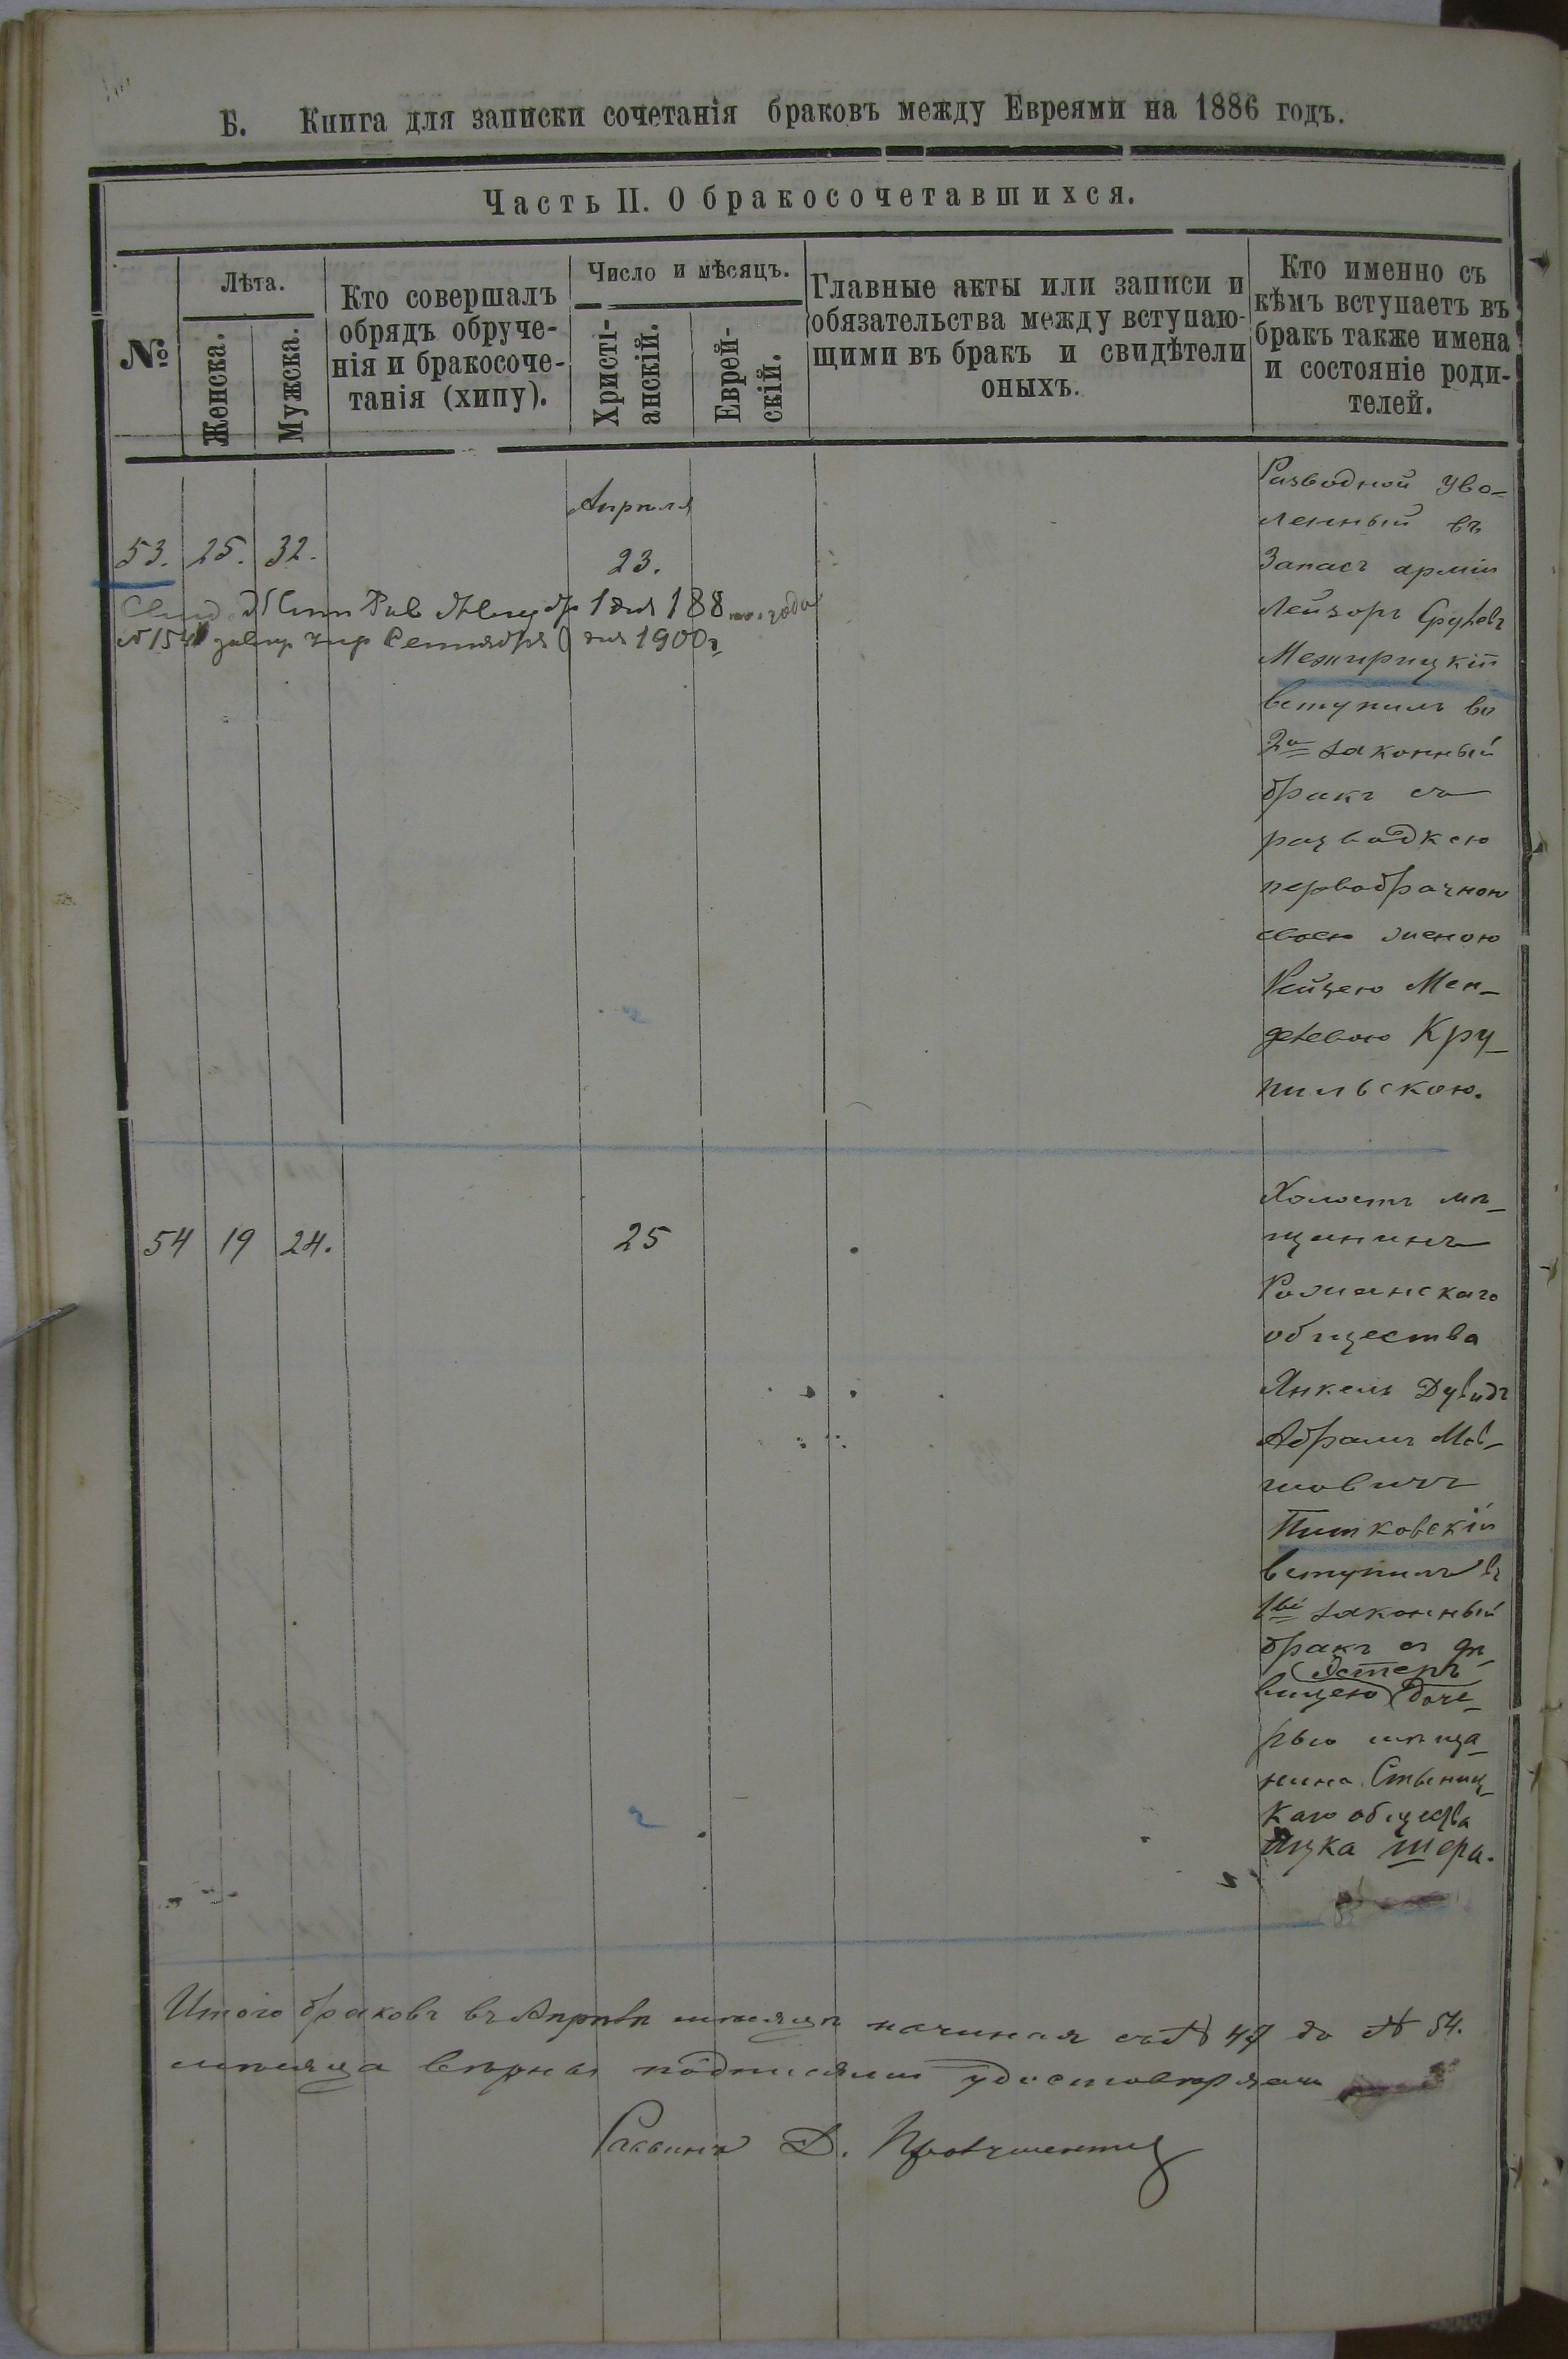 Б. Книга для записки сочетанія браковъ между Евреями на 1886 годъ.
Часть II. О бракосочетавшихся.
№
Лѣта.
Женска.
Мужска.
Кто совершалъ
обрядъ обруче-
нія и бракосоче-
танія (хипу).
Число и мѣсяцъ.
Христі-
анскій.
Еврей-
скій.
Главные акты или записи и
обязательства между вступаю-
щими въ бракъ и свидѣтели
оныхъ.
Кто именно съ
кѣмъ вступаетъ въ
бракъ также имена
и состояніе роди-
телей.
Апрѣля
53. 25. 32. 23.
1 дня 188 года
Сентября дня 1900 г
Разводной Уво-
ленный въ
Запасъ арміи
Лейзоръ Срулевъ
Межирицкій
вступилъ во
2й законный
бракъ съ
разводкою
первобрачною
своею женою
Рейзею Мен-
делевою Кру-
пильскою.
54 19 24. 25
Холостъ мѣ-
щанинъ
Романскаго
общества
Янкель Дувидъ
Абрамъ Мов-
шовичъ
Питковскій
вступилъ въ
1ый законный
бракъ съ дѣ-
Эстеръ
вицею доче-
рью мѣща-
нина
каго общества
Ицка Шера.
Итого браковъ въ Апрѣлѣ мѣсяцѣ начиная съ № 47 до № 54.
мѣсяца вѣрны подписями удостовѣряемъ
Раввинъ Д.